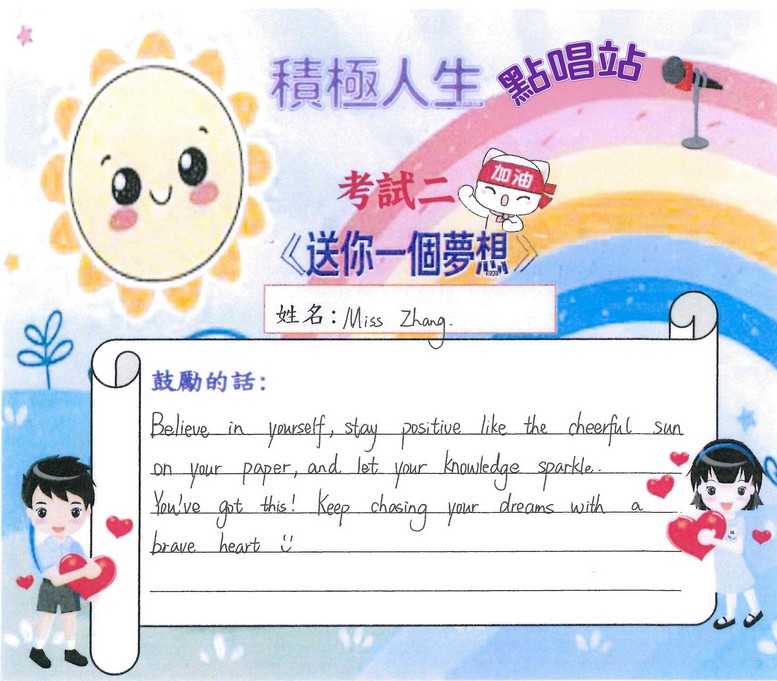 積極人生 點唱站
考試二
加油
《送你一個夢想》
姓名：Miss Zhang.
鼓勵的話：
Believe in yourself, stay positive like the cheerful sun
on your paper, and let your knowledge sparkle.
You've got this! Keep chasing your dreams with a
brave heart